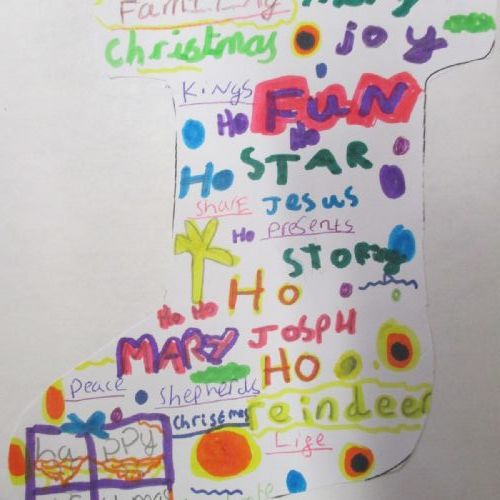 Merry
Christmas joy
Kings FUN
Ho Ho
Ho STAR
share Jesus
Ho presents
STORY
Ho
Ho Ho
MARY JOSPH
HO
Peace shepherds
Christmas reindeer
happy Lige